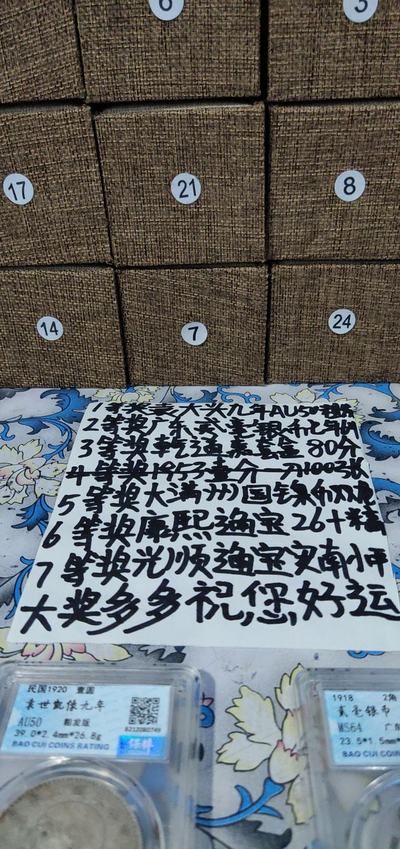 6
3
17
21
8
14
7
24
1等奖袁大头九年AU50
2等奖广东贰毫银币
3等奖乾通 80分
4等奖1953壹分一刀100张
5等奖大满州国镍币
6等奖康熙通宝26十
7等奖光顺通宝安南小平
大奖多多祝,您,好运
民国1920 壹圆
袁世凯像九年
AU50 精发版
39.0*2.4mm*26.8g
BAO CUI COINS RATING
6212080749
保粹
1918 2角
贰毫银币
MS64 广
23.5*1.5mm*
BAO CUI COINS